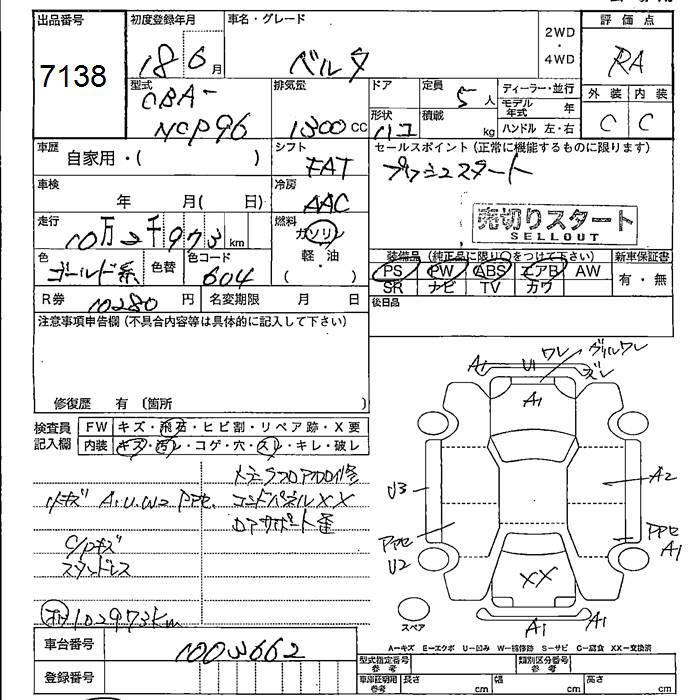 出品番号
7138
初度登録年月
18 6月
車名・グレード
ベルタ
2WD
・
4WD
評価点
RA
外装 内装
C C
型式
CBA-
NCP96
排気量
1300cc
ドア
形状
ハコ
定員
5人
積載
kg
ディーラー・並行
モデル年式 年
ハンドル 左・右
車歴
自家用・( )
シフト
FAT
セールスポイント (正常に機能するものに限ります)
プッシュスタート
車検
年 月( 日)
冷房
AAC
売切りスタート
SELLOUT
走行
10万2千973km
燃料
ガソリン
軽・油
( )
色
ゴールド系
色替
色コード
604
装備品 (純正品に限り○をつけて下さい)
新車保証書
PS PW ABS エアB AW
SR ナビ TV カワ
有・無
R券
10280円
名変期限 月 日
後日品
注意事項申告欄 (不具合内容等は具体的に記入して下さい)
修復歴 有 〔箇所 〕
検査員記入欄
FW キズ・飛石・ヒビ割・リペア跡・X要
内装 キズ・汚レ・コゲ・穴・スレ・キレ・破レ
リキズ A.U.W2 PPセ.
コンドパネルXX
C/Pキズ
スタンドレス
102973km
車台番号
1003662
登録番号
ワレ
グリルワレ
ズレ
A1 U1
A1
U3
A2
PPセ
U2
PPセ
A1
XX
スペア
A1 A1
A=キズ E=エクボ U=凹み W=補修跡 S=サビ C=腐食 XX=交換済
型式指定番号
参考
類別区分番号
参考
車庫証明用
参考
長さ cm
幅 cm
高さ cm